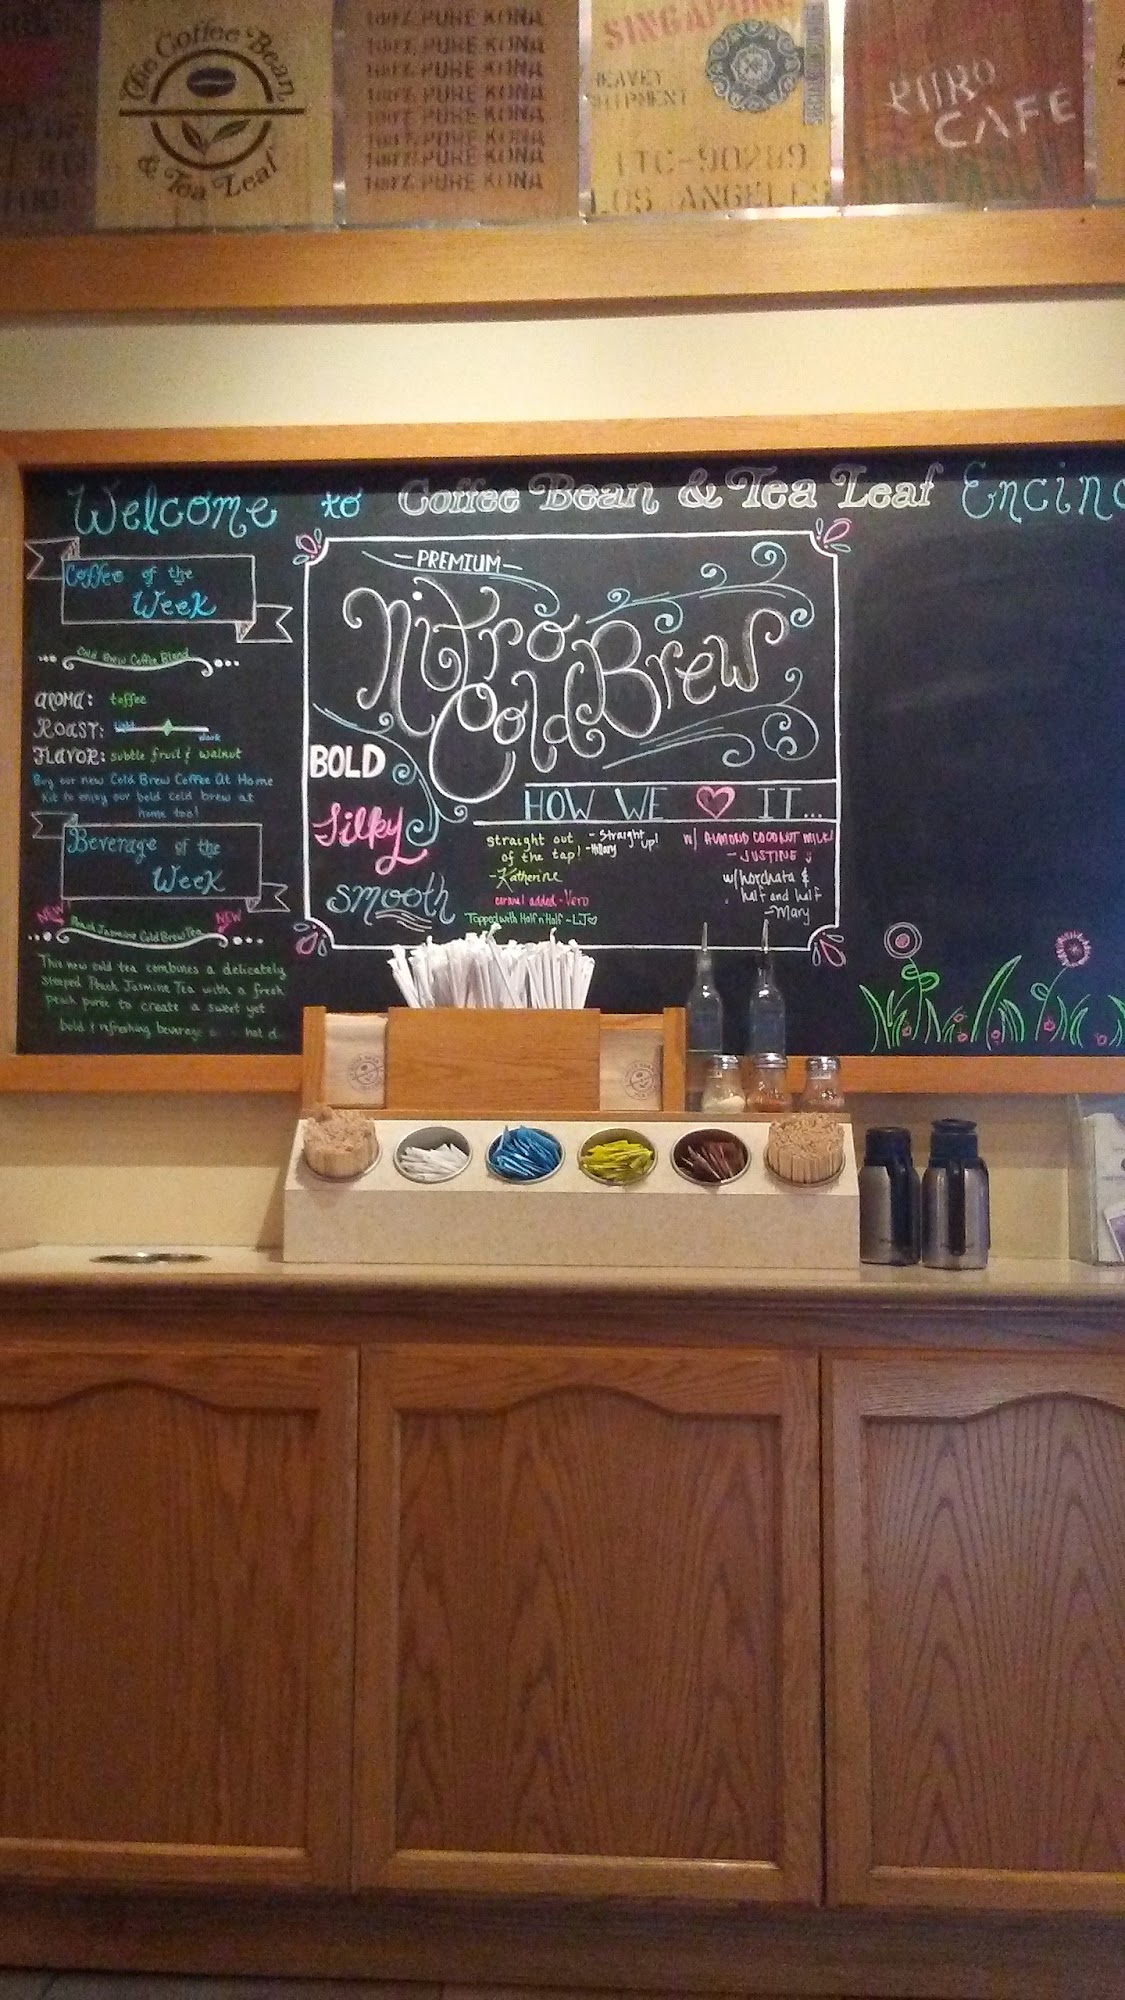 The Coffee Bean
& Tea Leaf
100% PURE KONA
100% PURE KONA
100% PURE KONA
100% PURE KONA
100% PURE KONA
100% PURE KONA
100% PURE KONA
100% PURE KONA
SINGAPORE
ITC-90289
LOS ANGELES
PURO
CAFE
Welcome to Coffee Bean & Tea Leaf Encino
Coffee of the
Week
Cold Brew Coffee Blend
AROMA: toffee
ROAST: light
dark
FLAVOR: subtle fruit & walnut
Buy our new Cold Brew Coffee At Home
Kit to enjoy our bold cold brew at
home too!
Beverage of the
Week
NEW
NEW
Peach Jasmine Cold Brew Tea
This new cold tea combines a delicately
steeped Peach Jasmine Tea with a fresh
peach purée to create a sweet yet
bold & refreshing beverage
—PREMIUM—
Nitro
Cold Brew
BOLD
Silky
smooth
HOW WE ♡ IT...
straight out
of the tap!
-Katherine
-Straight
up!
-Hillary
caramel added -Vero
Topped with Half n' Half -LJ♡
w/ ALMOND COCONUT MILK!
-JUSTINE :)
w/horchata &
half and half
-Mary